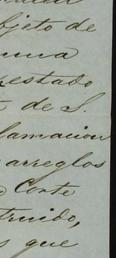 objeto de
una
prestado
de S.
lamacion
arreglos
Corte
truido,
que